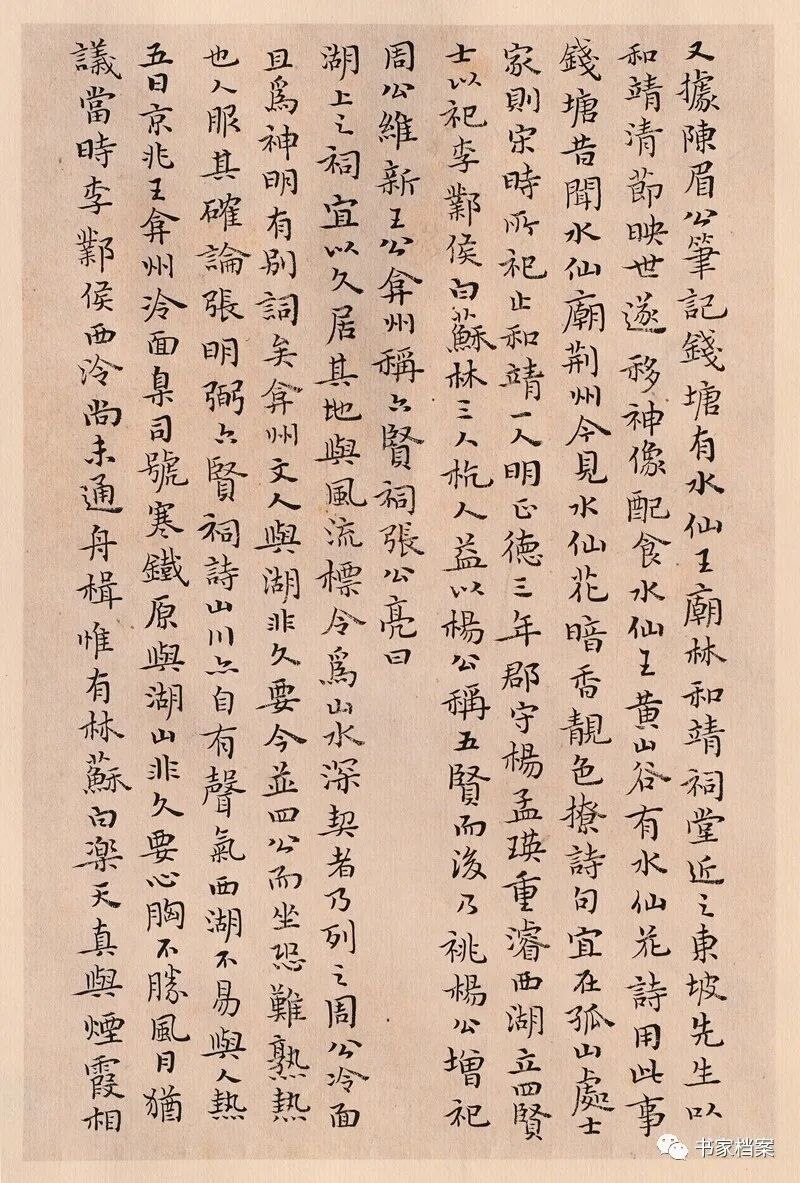 又據陳眉公筆記錢塘有水仙王廟林和靖祠堂近之東坡先生以
和靖清節映世遂移神像配食水仙王黃山谷有水仙花詩用此事
錢塘昔聞水仙廟荆州今見水仙花暗香靚色撩詩句宜在孤山處士
家則宋時所祀止和靖一人明正德三年郡守楊孟瑛重濬西湖立四賢
士以祀李鄴侯白蘇林三人杭人益以楊公稱五賢而後乃祧楊公增祀
周公維新王公弇州稱六賢祠張公亮曰
湖上之祠宜以久居其地與風流標令為山水深契者乃列之周公冷面
且為神明有别詞矣弇州文人與湖非久要今並四公而坐恐難熟熱
也人服其確論張明弼六賢祠詩山川亦自有聲氣西湖不易與人熱
五日京兆王弇州冷面臬司號寒鐵原與湖山非久要心胸不勝風月猶
議當時李鄴侯西泠尚未通舟楫惟有林蘇白樂天真與煙霞相
书家档案